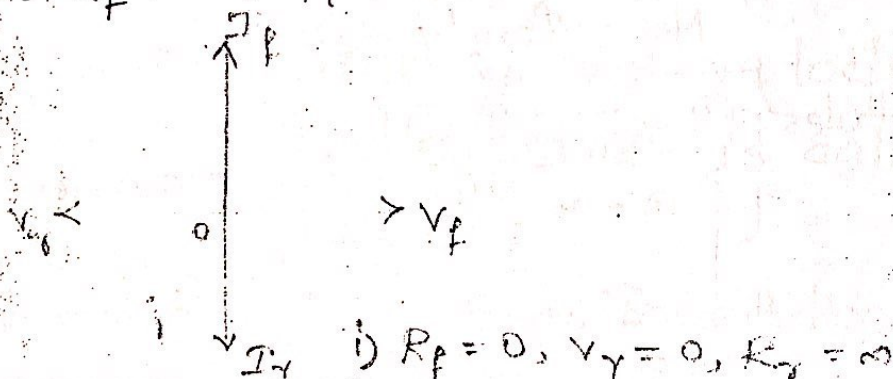 I_f
V_r
0
V_f
I_r
i) R_f = 0, V_γ = 0, R_r = ∞